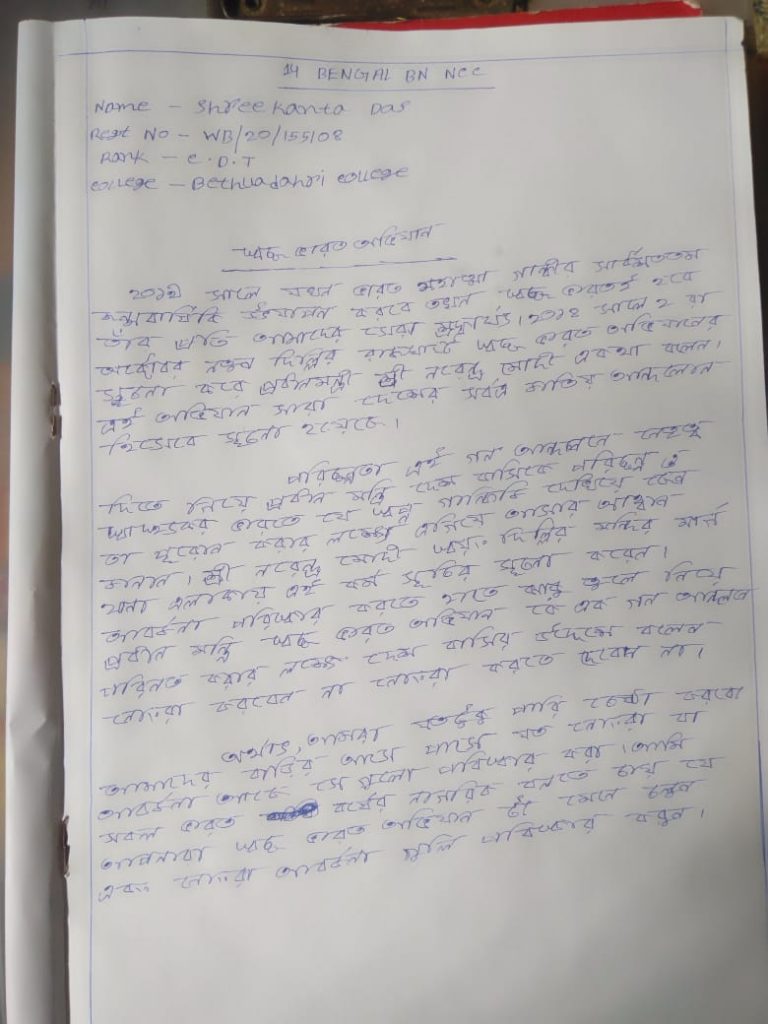 14 BENGAL BN NCC
Name - Shreekanta Das
Regt No - WB/20/155108
Rank - C.D.T
College - Bethuadahri College
স্বচ্ছ ভারত অভিযান
২০১৯ সালে যখন ভারত মহাত্মা গান্ধীর সার্ধশততম
জন্মবার্ষিকি উদযাপন করবে তখন স্বচ্ছ ভারতই হবে
তাঁর প্রতি আমাদের সেরা শ্রদ্ধার্ঘ্য। ২০১৪ সালে ২ রা
অক্টোবর নতুন দিল্লির রাজঘাটে স্বচ্ছ ভারত অভিযানের
সূচনা করে প্রধানমন্ত্রী শ্রী নরেন্দ্র মোদী একথা বলেন।
এই অভিযান সারা দেশের সর্বত্র জাতিয় আন্দলোন
হিসেবে সূচনা হয়েছে।
পরিচ্ছন্নতা এই গন আন্দলনে নেতৃত্ব
দিতে গিয়ে প্রধান মন্ত্রি দেশ বাসিকে পরিচ্ছন্ন ও
স্বাস্থ্যকর ভারতে যে স্বপ্ন গান্ধিজি দেখিয়ে ছেন
তা পূরোন করার লক্ষ্যে এগিয়ে আসার আহ্বান
জানান। শ্রী নরেন্দ্র মোদী স্বয়ং দিল্লির মন্দির মার্গ
থানা এলাকায় এই কর্ম সূচির সূচনা করেন।
আবর্জনা পরিষ্কার করতে হাতে ঝাড়ু তুলে নিয়ে
প্রধান মন্ত্রি স্বচ্ছ ভারত অভিযান কে এক গন আন্দলনে
পরিনত করার লক্ষ্যে দেশ বাসির উদ্দেশে বলেন
নোংরা করবেন না নোংরা করতে দেবেন না।
অর্থাৎ, আমরা যতটুকু পারি চেষ্টা করবো
আমাদের বাড়ির আসে পাসে যত নোংরা বা
আবর্জনা আছে সে গুলো পরিষ্কার করা। আমি
সকল ভারত বর্ষের নাগরিক বলতে চায় যে
আপনারা স্বচ্ছ ভারত অভিযান টা মেনে চলুন
এবং নোংরা আবর্জনা গুলি পরিষ্কার করুন।